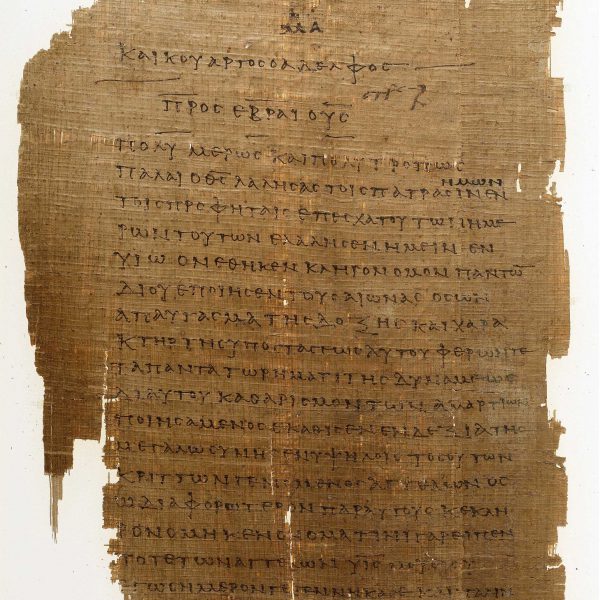 ΜΑ
ΚΑΙ ΚΟΥΑΡΤΟϹ Ο ΑΔΕΛΦΟϹ
ΠΡΟϹ ΕΒΡΑΙΟΥϹ
ΠΟΛΥΜΕΡΩϹ ΚΑΙ ΠΟΛΥΤΡΟΠΩϹ
ΗΜΩΝ
ΠΑΛΑΙ Ο ΘϹ ΛΑΛΗϹΑϹ ΤΟΙϹ ΠΑΤΡΑϹΙΝ ΕΝ
ΤΟΙϹ ΠΡΟΦΗΤΑΙϹ ΕΠ ΕϹΧΑΤΟΥ ΤΩΝ ΗΜΕ
ΡΩΝ ΤΟΥΤΩΝ ΕΛΑΛΗϹΕΝ ΗΜΕΙΝ ΕΝ
ΥΙΩ ΟΝ ΕΘΗΚΕΝ ΚΛΗΡΟΝΟΜΟΝ ΠΑΝΤΩ̅
ΔΙ ΟΥ ΕΠΟΙΗϹΕΝ ΤΟΥϹ ΑΙΩΝΑϹ ΟϹ ΩΝ
ΑΠΑΥΓΑϹΜΑ ΤΗϹ ΔΟΞΗϹ ΚΑΙ ΧΑΡΑ
ΚΤΗΡ ΤΗϹ ΥΠΟϹΤΑϹΕΩϹ ΑΥΤΟΥ ΦΕΡΩΝ ΤΕ
ΤΑ ΠΑΝΤΑ ΤΩ ΡΗΜΑΤΙ ΤΗϹ ΔΥΝΑΜΕΩϹ
ΔΙ ΑΥΤΟΥ ΚΑΘΑΡΙϹΜΟΝ ΤΩΝ ΑΜΑΡΤΙΩΝ
ΠΟΙΗϹΑΜΕΝΟϹ ΕΚΑΘΙϹΕΝ ΕΝ ΔΕΞΙΑ ΤΗϹ
ΜΕΓΑΛΩϹΥΝΗϹ ΕΝ ΥΨΗΛΟΙϹ ΤΟϹΟΥΤΩΝ
ΚΡΙΤΤΩΝ ΓΕΝΟΜΕΝΟϹ ΑΓΓΕΛΩΝ ΟϹ
Ω ΔΙΑΦΟΡΩΤΕΡΟΝ ΠΑΡ ΑΥΤΟΥϹ ΚΕΚΛΗ
ΡΟΝΟΜΗΚΕΝ ΟΝΟΜΑ ΤΙΝΙ ΓΑΡ ΕΙΠΕΝ
ΠΟΤΕ ΤΩΝ ΑΓΓΕΛΩΝ ΥΙϹ
ϹΗΜΕΡΟΝ ΓΕΓΕΝΝΗΚΑ ϹΕ ΚΑΙ ΠΑΛΙΝ